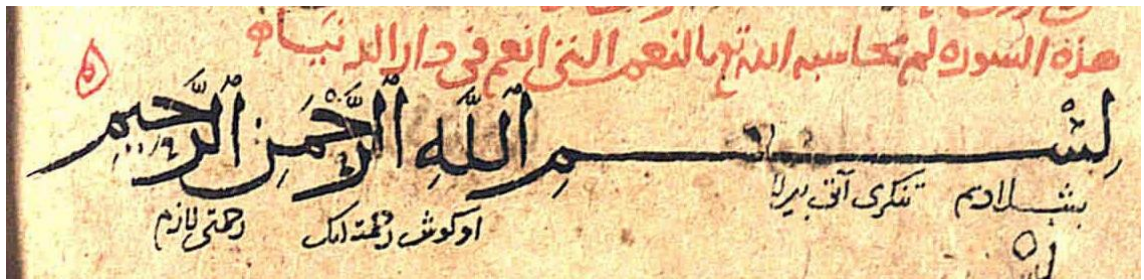 هذه السورة لم يحاسبه الله تع بالنعم التى انعم فى دار الدنيا
بِسْمِ اَللّٰهِ اَلرَّحْمٰنِ اَلرَّحِيمِ
بشلاديم تنكرى آتى بيرلا اوكوش رحمتلك رحمتى لازم